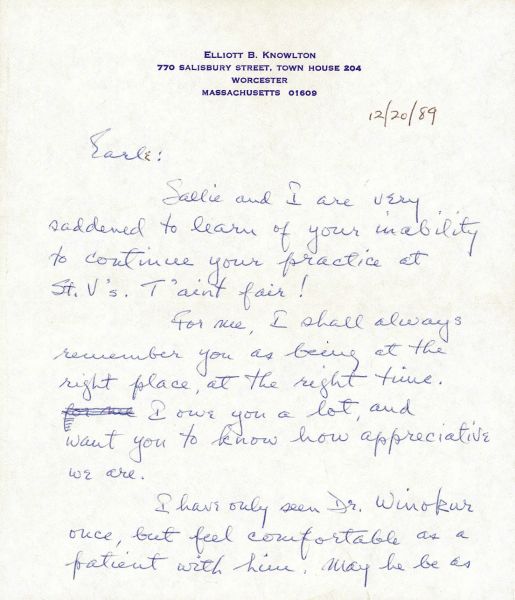 ELLIOTT B. KNOWLTON
770 SALISBURY STREET, TOWN HOUSE 204
WORCESTER
MASSACHUSETTS 01609
12/20/89
Earle:
Sallie and I are very
saddened to learn of your inability
to continue your practice at
St. V's. T'aint fair!
For me, I shall always
remember you as being at the
right place, at the right time.
for me I owe you a lot, and
want you to know how appreciative
we are.
I have only seen Dr. Winokur
once, but feel comfortable as a
patient with him. May he be as